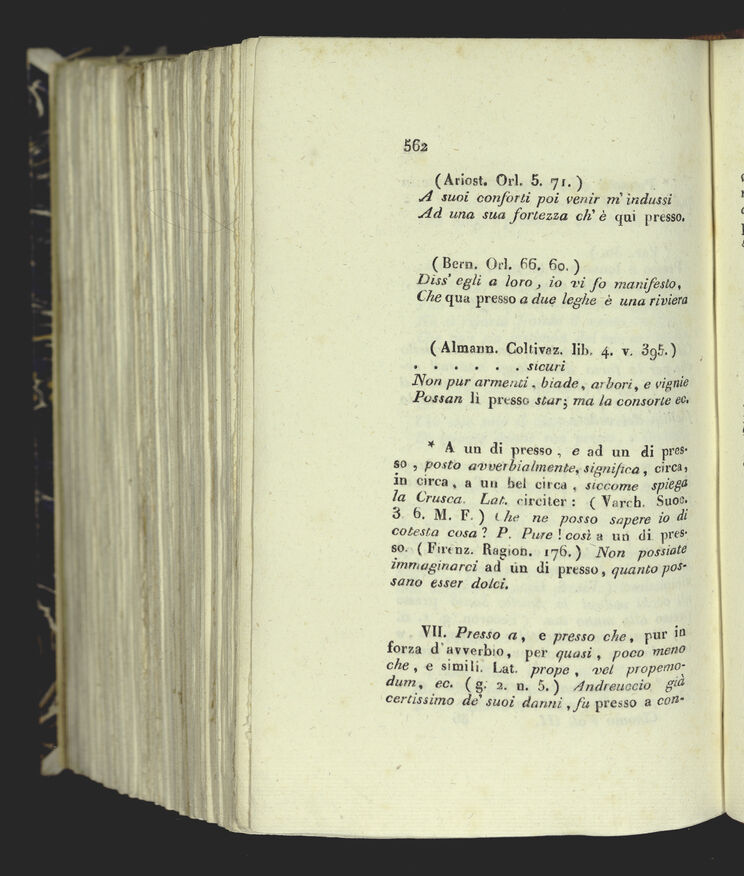 562
(Ariost. Orl. 5. 71.)
A suoi conforti poi venir m' indussi
Ad una sua fortezza ch' è qui presso.
(Bern. Orl. 66. 60.)
Diss' egli a loro, io vi fo manifesto,
Che qua presso a due leghe è una riviera
(Almann. Coltivaz. lib. 4. v. 395.)
. . . . . . sicuri
Non pur armenti, biade, arbori, e vignie
Possan lì presso star; ma la consorte ec.
* A un di presso, e ad un di pres-
so, posto avverbialmente, significa, circa,
in circa, a un bel circa, siccome spiega
la Crusca. Lat. circiter: (Varch. Suoc.
3. 6. M. F.) Che ne posso sapere io di
cotesta cosa? P. Pure! così a un di pres-
so. (Firenz. Ragion. 176.) Non possiate
immaginarci ad un di presso, quanto pos-
sano esser dolci.
VII. Presso a, e presso che, pur in
forza d'avverbio, per quasi, poco meno
che, e simili. Lat. prope, vel propemo-
dum, ec. (g. 2. n. 5.) Andreuccio già
certissimo de' suoi danni, fu presso a con-